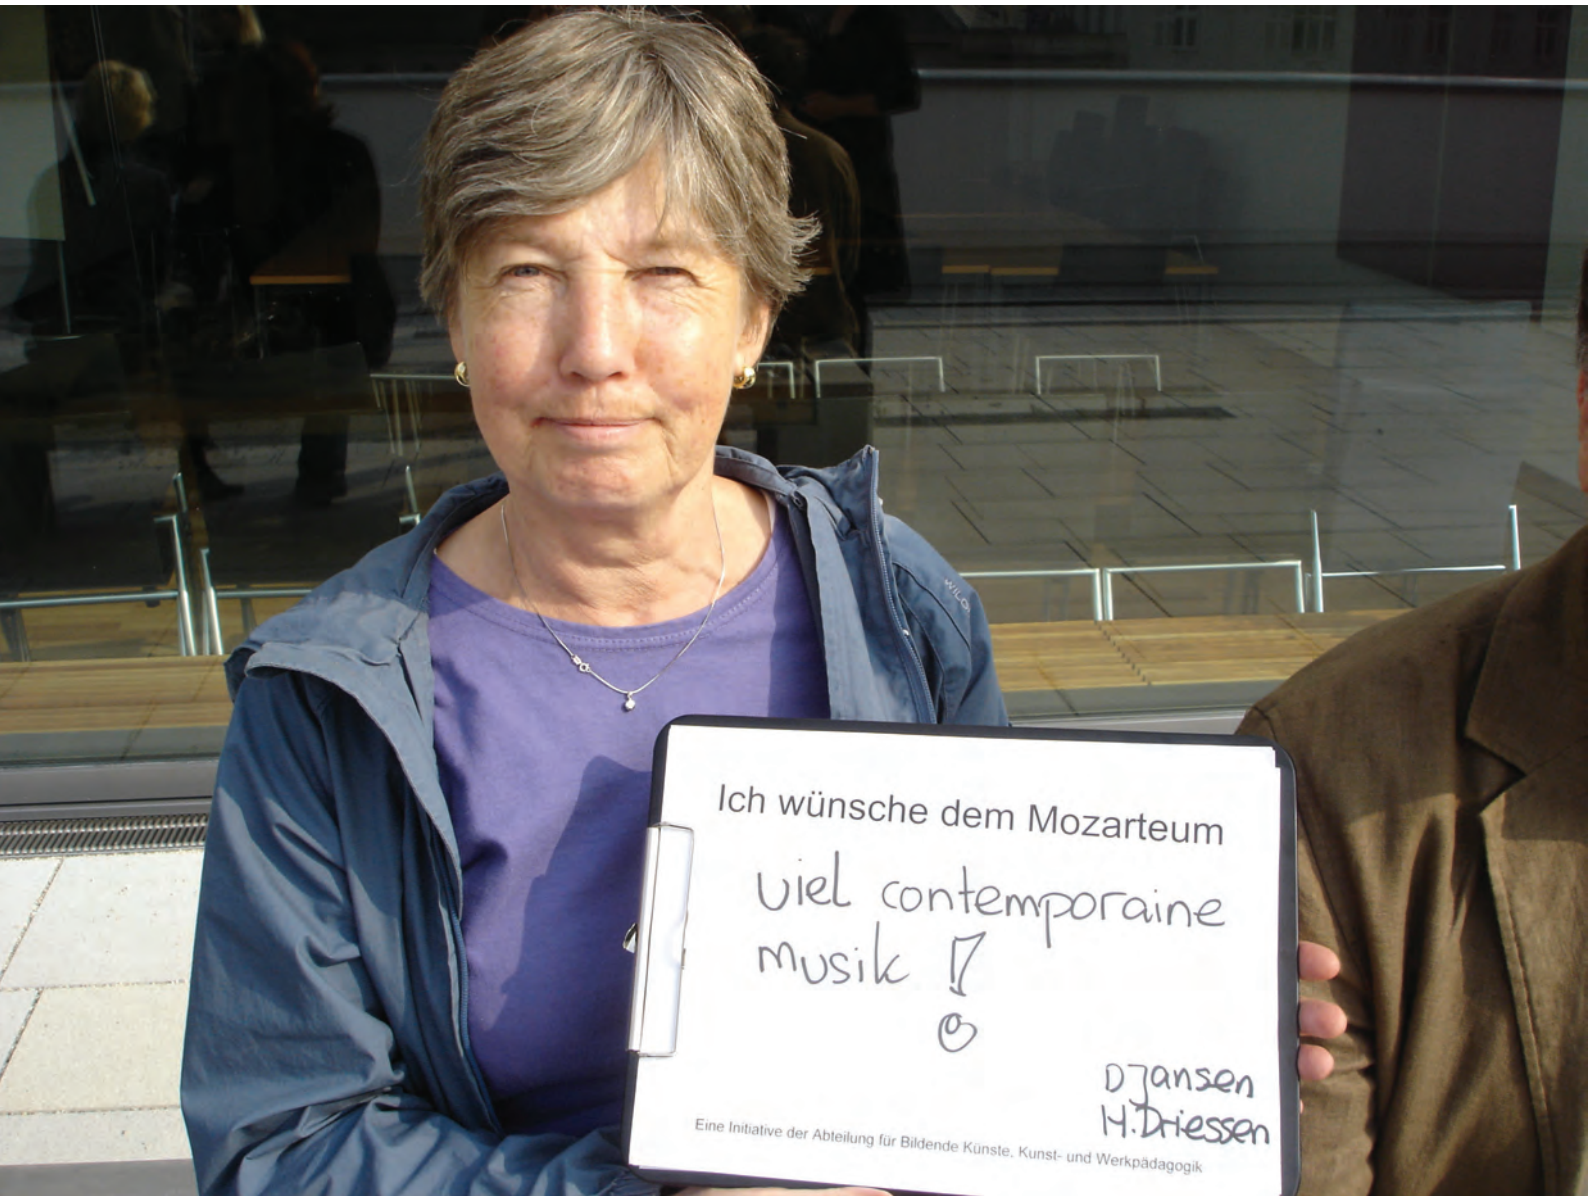 Ich wünsche dem Mozarteum
viel contemporaine
musik !
D Jansen
H. Driessen
Eine Initiative der Abteilung für Bildende Künste, Kunst- und Werkpädagogik